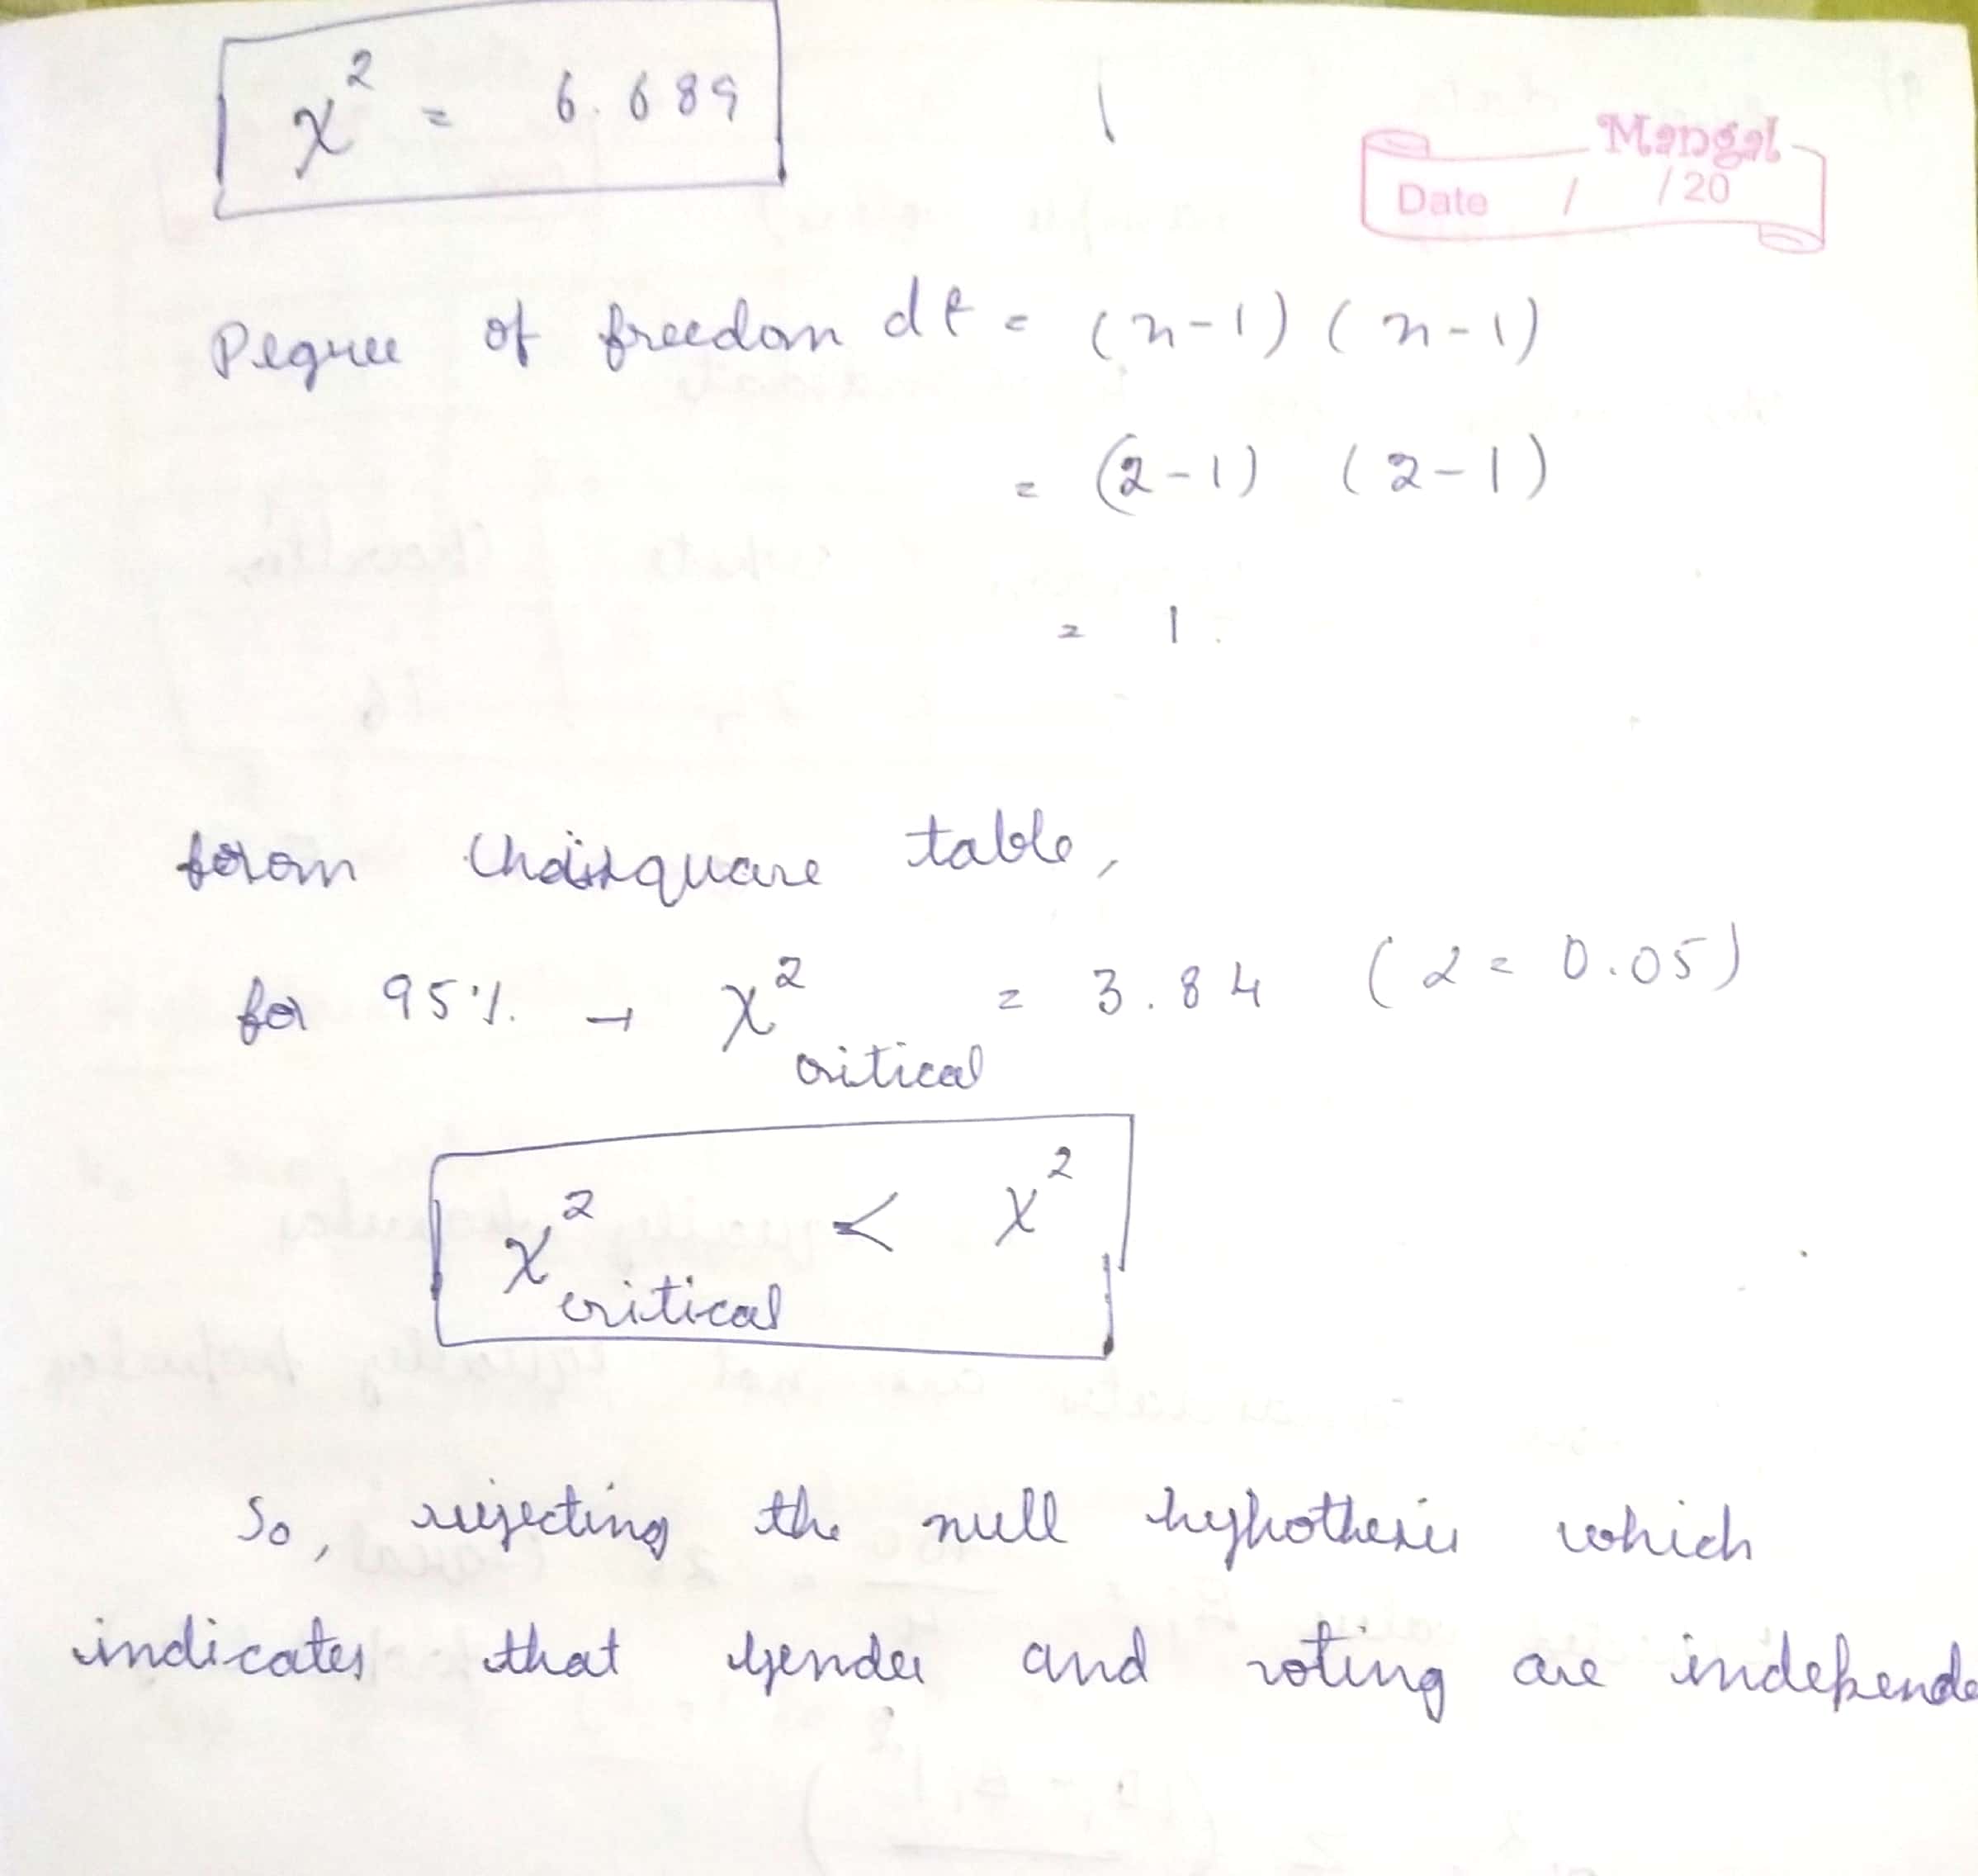 χ² = 6.689
Mangal
Date / /20
Degree of freedom df = (n-1) (n-1)
= (2-1) (2-1)
= 1
from square table,
for 95% → χ² critical = 3.84 (α = 0.05)
χ² critical < χ²
So, rejecting the null hypothesis which
indicates that gender and voting are independe